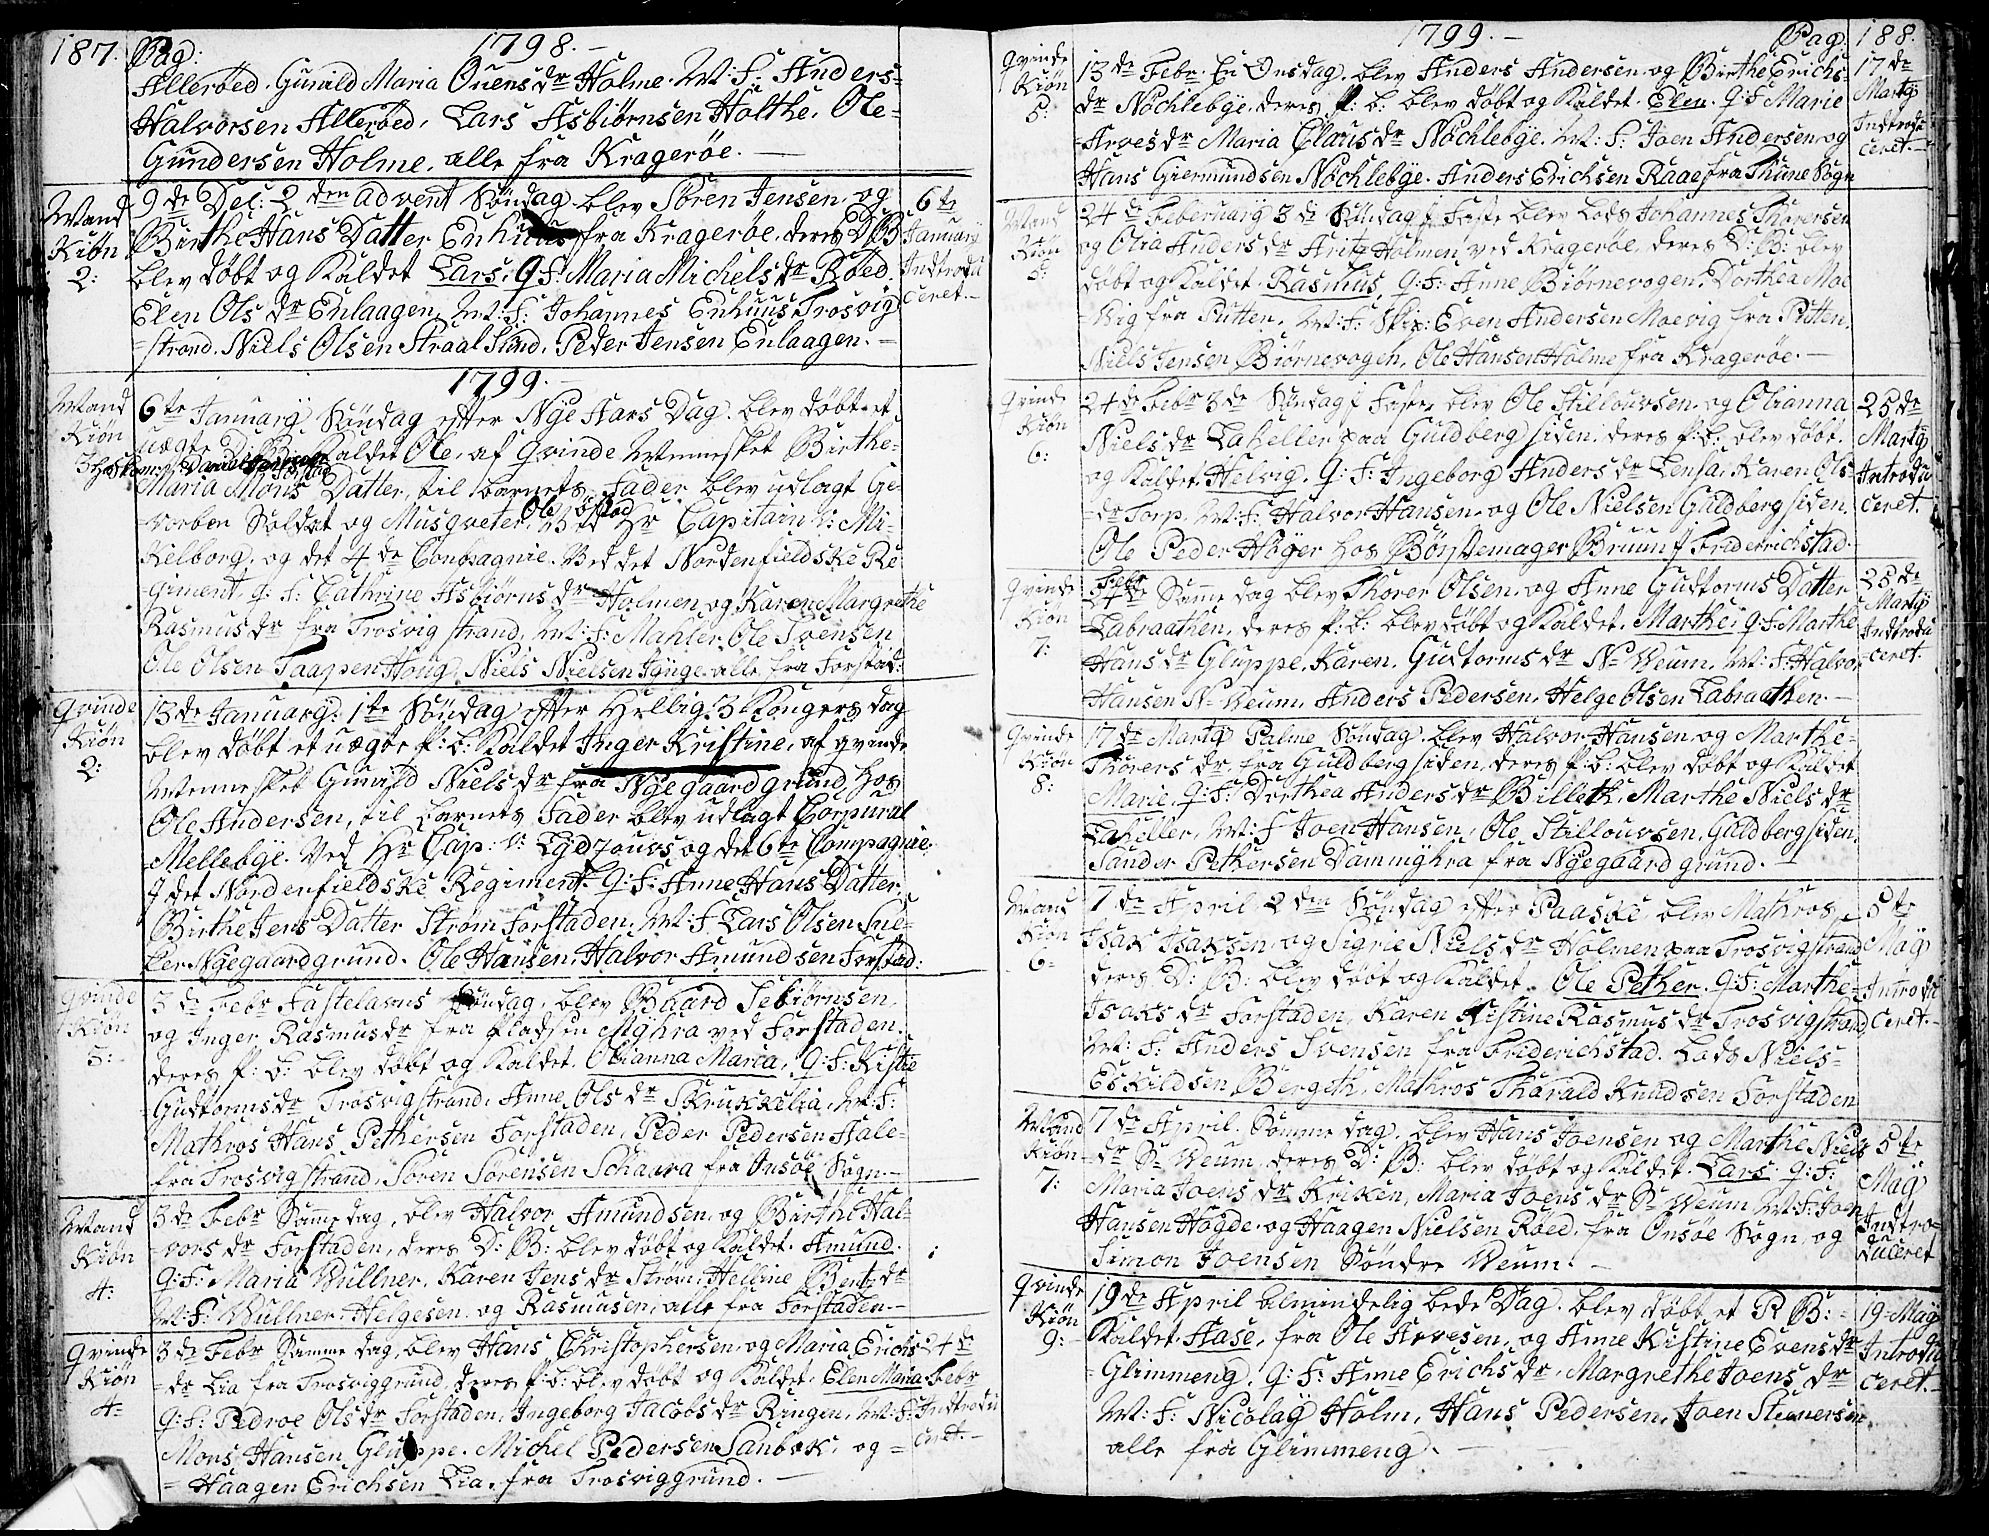 187. Pag: 1798.-
Allerøed. Gunild Maria Ouens dr Holme. M: F: Anders=
Halvorsen Allerøed, Lars Asbiørnsen Holthe, Ole=
Gundersen Holme. alle fra Kragerøe.
Mand Kiøn 2:
9de Dec: 2den Advent Søndag blev Søren Jensen og
Birthe Hans Datter Enhuus fra Kragerøe. deres D B
blev døbt og kaldet Lars. Q F. Maria Michels dr Røed.
Elen Ols dr Enlaagen, M: F: Johannes Enhuus Trosvig
=strand. Niels Olsen Straal Sund. Peder Jensen Enlaagen.=
6te January Indtroduceret.-
1799.-
Mand Kiøn 3
6te January Søndag efter Nye Aars Dag. blev døbt et
uægte kaldet Ole, af Qvinde Mennesket Birthe=
Maria Mons Datter, til barnets Fader blev udlagt Ge-
=vorben Soldat og Musqveter Hr Capitain v: Mi-
Kelborg, og det 4de Compagnie. Ved det Nordenfieldske Re
giment. Q: F: Cathrine Asbiørns dr Holmen og Karen Margrethe
Rasmus dr fra Trosvig strand, M: F: Mahler Ole Svensen
Ole Olsen Taapen Houg, Niels Nielsen Jynge alle fra Forstad:
Qvinde Kiøn 2:
13de January. 1te Søndag efter Hellig 3 Kongers dag
blev døbt et uægte p: b: kaldet Inger Kristine, af qvinde
Mennesket Gunild Niels dr fra Nyegaard grund hos
Ole Andersen, til barnets Fader blev udlagt Corpural
Mellebye. Ved Hr Cap: v: og det 6te Compagnie
J det Nordenfieldske Regiment. Q: F: Anne Hans Datter
Birthe Jens Datter Strøm Forstaden. M: F. Lars Olsen Sne-
ker Nyegaardgrund. Ole Hansen, Halvor Amundsen Forstad:
Qvinde Kiøn 3:
3de Febr Fastelavns Søndag, blev Baard Tebiørnsen
og Inger Rasmus dr fra Pladsen Myhra ved Forstaden.
deres p: b: blev døbt og kaldet. Olianna Maria, Q: F: Kistie
Gudtorms dr Trosvigstrand. Anne Ols dr Skrukkelia. M: F:
Mathros Hans Pethersen Forstaden, Peder Pedersen Hale-
fra Trosvigstrand, Søren Sørensen Schaara fra Onsøe Sogn.-
Mand Kiøn 4:
3de Febr Samme dag, blev Halvor Amundsen og Birthe Hal-
=vors dr Forstaden, deres D: B: blev døbt og kaldet. Amund.
Q: F: Maria Wullner. Karen Jens dr Strøm, Helline Bent dr
M: F: Wullner Helgesen og Rasmusen, alle fra Forstaden.-
Qvinde Kiøn 4=
3de Febr Samme dag, blev Hans Christophersen og Maria Erichs
=dr Lia fra Trosviggrund, deres p: b: blev døbt og kaldet. Elen Maria
Q: F: Pedroe Ols dr Forstaden, Ingeborg Jacobs dr Ringen, M: F:
Mons Hansen Gluppe. Michel Pedersen Sanbæk, og =
=Haagen Erichsen Lia. fra Trosviggrund.
24de Febr Indtroduceret.-
1799.- Pag: 188.
Qvinde Kiøn 5:
13de Febr En Onsdag. blev Anders Andersen og Birthe Erichs-
dr Nøchlebye, deres p: b: blev døbt og kaldet. Elen. Q: F: Marie
=Arves dr Maria Claus dr Nøchlebye. M: F: Joen Andersen og
Hans Giermundsen Nøchlebye. Anders Erichsen Raae fra Thune Sogn
17de Marty Indtroduceret.-
Mand Kiøn 5:
24de Februarij 3de Søndag j Faste blev Lods Johannes Thoresen
og Olia Anders dr Holmen ved Kragerøe, deres D: B: blev
døbt og kaldet. Rasmus. Q: F: Anne Biørnevogen. Dorthea Moe
=vig fra Putten. M: F: Skip: Even Andersen Moevig fra Putten.
Niels Jensen Biørnevogen. Ole Hansen Holme fra Kragerøe.-
Qvinde Kiøn 6:
24de Febr 3de Søndag j Faste blev Ole Stillouvsen og Olianna
Niels dr Lakeller paa Guldberg siden, deres p: b: blev døbt
og kaldet. Helvig. Q: F: Ingeborg Anders dr Lensa, Karen Ols
=dr Torp. M: F: Halvor Hansen og Ole Nielsen Guldbergsiden.
Ole Peder Høyer hos Børstemager Bruun j Friderichstad.
25de Marty Introduceret.
Qvinde Kiøn 7:
24de Febr Samme dag blev Thorer Olsen og Anne Gudtorms Datter
Labraathen, deres p: b: blev døbt og kaldet. Marthe. Q: F: Marthe
Hans dr Gluppe. Karen Gudtorms dr N= Weum. M: F: Halvor
Hansen N= Weum, Anders Pedersen, Helge Olsen Labraathen.-
25de Marty Indtroduceret.
Qvinde Kiøn 8:
17de Marty Palme Søndag. blev Halvor Hansen og Marthe-
Thorers dr fra Guldbergsiden, deres p: b: blev døbt og kaldet
Marie. Q: F: Dorthea Anders dr Billeth. Marthe Niels dr
Lakeller, M: F Joen Hansen, Ole Stillouvsen. Guldbergsiden.
Sander Pethersen Dammyhra fra Nyegaard grund.
Mand Kiøn 6=
7de April 2den Søndag efter Paaske, blev Mathros
Isak Isaksen og Sigrie Niels dr Holmen paa Trosvigstrand
deres D: B: blev døbt og kaldet. Ole Pether. Q: F: Marthe=
Isaks dr Forstaden, Karen Kistine Rasmus dr Trosvigstrand
M: F: Anders Svensen fra Friderichstad. Lods Niels-
Eskildsen Bergeth. Mathros Tharald Knudsen Forstaden
5te May Introduceret.-
Mand Kiøn 7:
7de April. Samme dag. blev Hans Joensen og Marthe Niels
=dr S= Weum. deres D: B: blev døbt og kaldet. Lars. Q: F:
Maria Joens dr Kriken, Maria Joens dr S= Weum M: F: Joen
Hansen Høgde og Haagen Nielsen Røed. fra Onsøe Sogn og
Simon Joensen Søndre Weum.-
5te May Indtroduceret
Qvinde Kiøn 9:-
19de April almindelig bede Dag. blev døbt et P B:-
kaldet Aase. fra Ole Arvesen og Anne Kistine Evens dr
=Glimmeng. Q: F: Anne Erichs dr, Margrethe Joens dr
M: F: Nicolay Holm, Hans Pedersen, Joen Steenersen
alle fra Glimmeng.-
19 May Introduceret.-